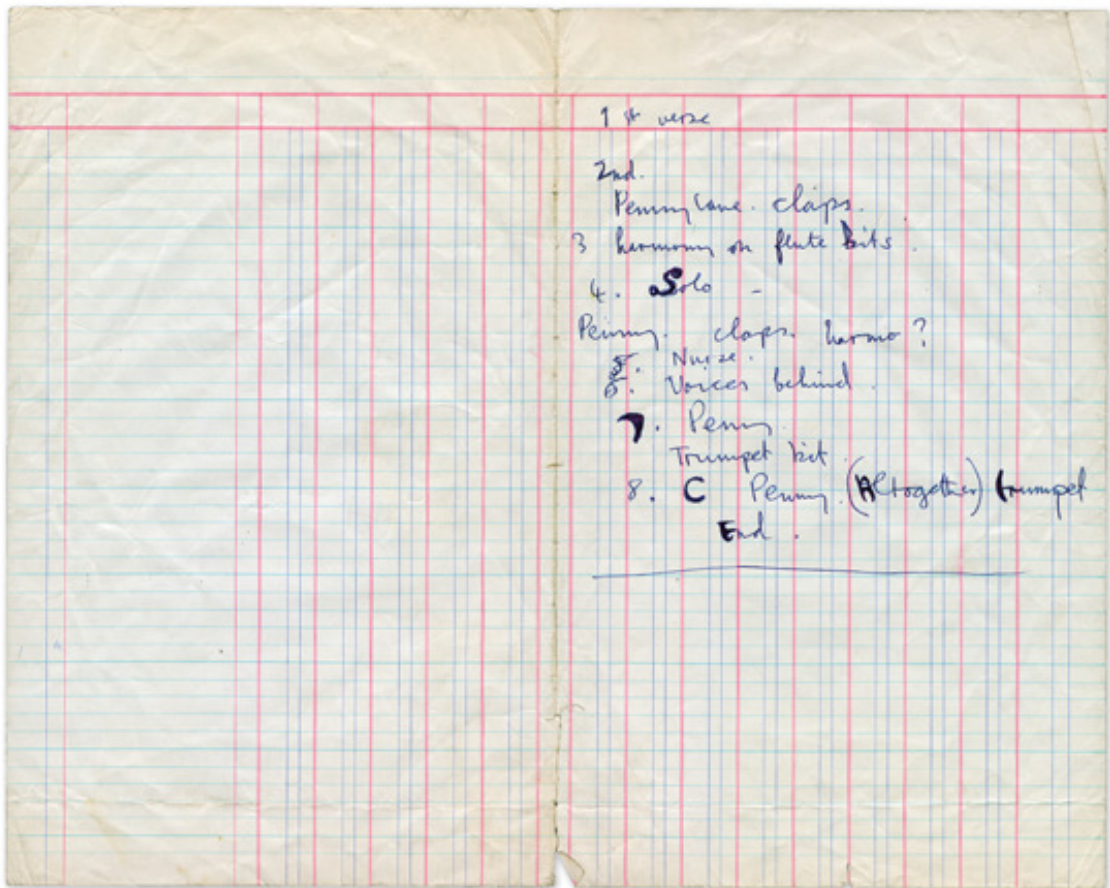 1st verse
2nd.
Penny Lane. claps.
3 harmony on flute bits.
4. Solo -
Penny. claps. harmo?
5. Nurse.
6. Voices behind.
7. Penny.
Trumpet bit.
8. C Penny. (Altogether) trumpet
End.